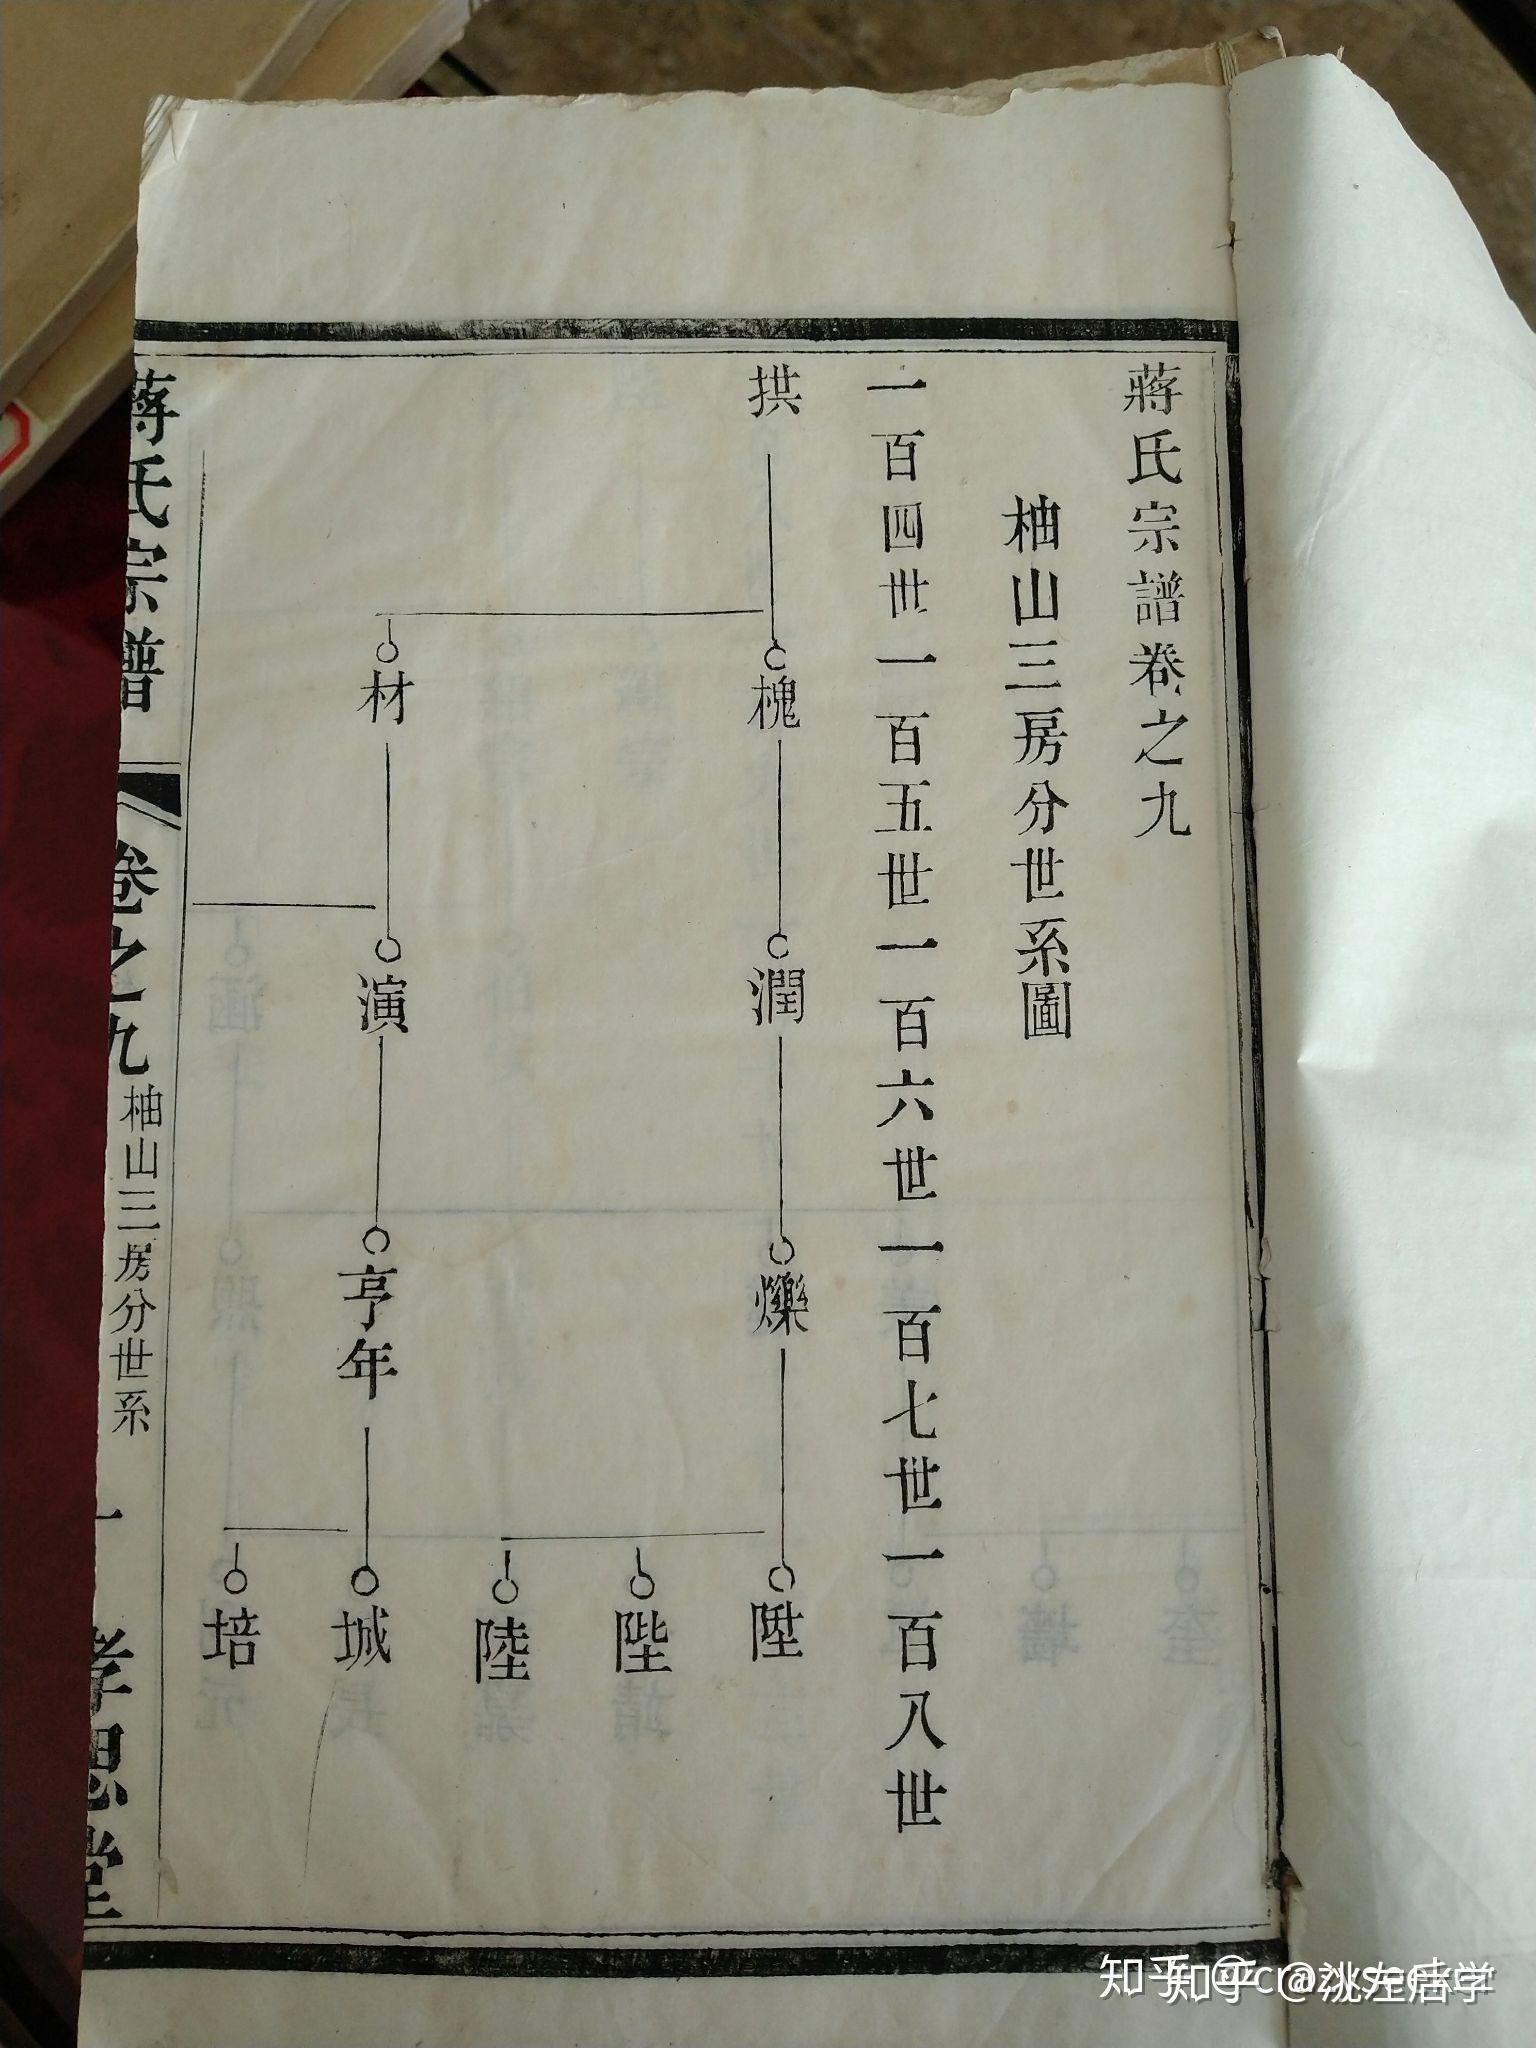 蔣氏宗譜卷之九
柚山三房分世系圖
一百四世一百五世一百六世一百七世一百八世
拱
槐
潤
爍
陞
陛
陸
材
演
亨年
城
培
蔣氏宗譜
卷之九
柚山三房分世系
一
孝思堂
知乎 @洮左后学